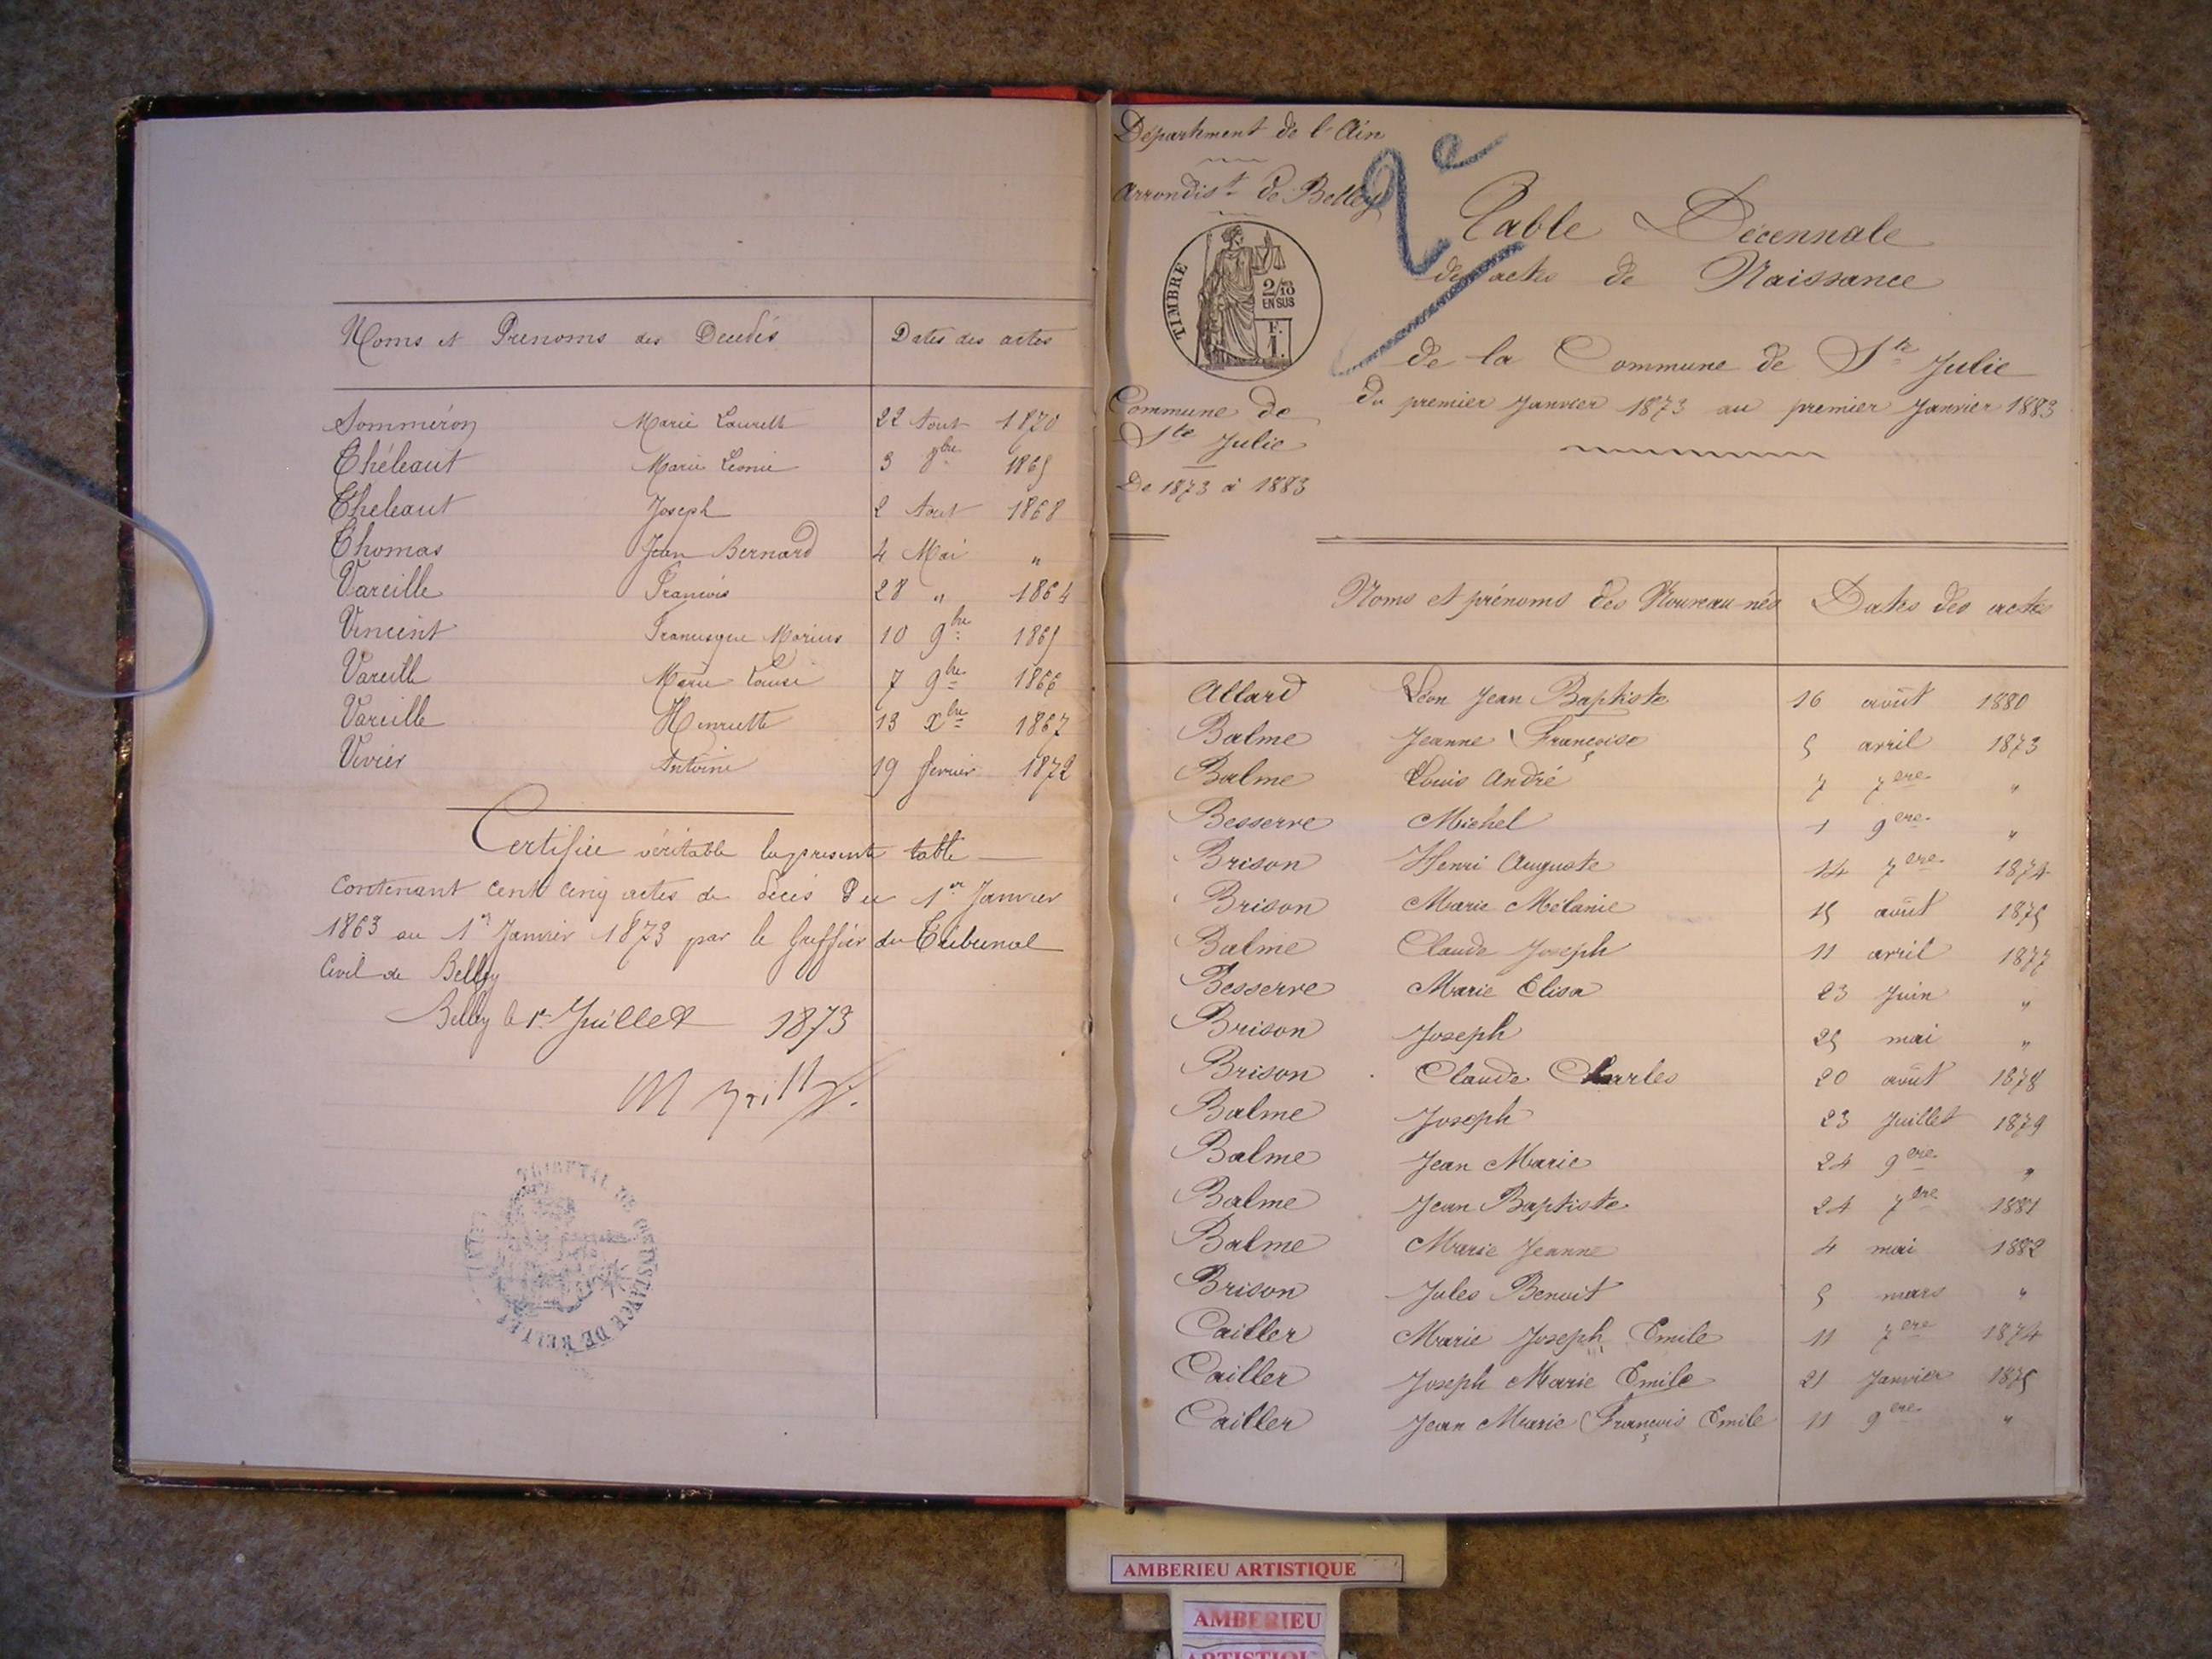 Noms et Prenoms des Decedés Dates des actes
Somméron Marie Laurette 22 Aout 1870
Théleaut Marie Leonie 3 8bre 1865
Theleaut Joseph 2 Aout 1868
Thomas Jean Bernard 4 Mai "
Vareille Francois 28 " 1864
Vincent Francisque Marius 10 9bre 1865
Vareille Marie Louise 7 9bre 1866
Vareille Henriette 13 Xbre 1867
Vivier Antoine 19 fevrier 1872
Certifiée véritable la presente table
Contenant cent cinq actes de décés Du 1er Janvier
1863 au 1er Janvier 1873 par le Greffier du Tribunal
Civil de Belley
Belley le 1er Juillet 1873
Département de l'Ain
Arrondist de Belley
2e
TIMBRE
2/10 EN SUS
F. 1.
Commune de
Ste Julie
De 1873 à 1883
Table Décennale
des actes de Naissance
de la Commune de Ste Julie
du premier Janvier 1873 au premier Janvier 1883
Noms et prénoms des Nouveau-nés Dates des actes
Allard Léon Jean Baptiste 16 août 1880
Balme Jeanne Françoise 5 avril 1873
Balme Louis André 7 7bre "
Besserve Michel 1 9bre "
Brison Henri Auguste 14 7bre 1874
Brison Marie Mélanie 15 août 1875
Balme Claude Joseph 11 avril 1877
Besserve Marie Elisa 23 Juin "
Brison Joseph 25 mai "
Brison Claude Charles 20 août 1878
Balme Joseph 23 Juillet 1879
Balme Jean Marie 24 9bre "
Balme Jean Baptiste 24 7bre 1881
Balme Marie Jeanne 4 mai 1882
Brison Jules Benoit 5 mars "
Cailler Marie Joseph Emile 11 7bre 1874
Cailler Joseph Marie Emile 21 Janvier 1875
Cailler Jean Marie François Emile 11 9bre "
AMBERIEU ARTISTIQUE
AMBERIEU